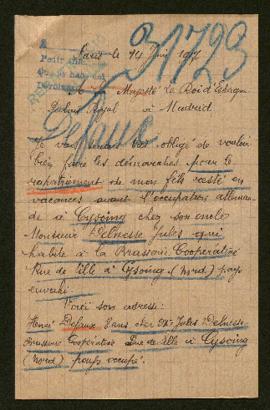 31793
Paris le 14 Juin 1917
A Sa Majesté Le Roi d'Espagne
Palais Royal à Madrid
Defaux
Je vous serais bien obligé de vouloir
bien faire les démarches pour le
rapatriement de mon fils resté en
vacances avant l'occupation alleman-
de à Cysoing chez son oncle
Monsieur Delnesse Jules qui
habite à la Brasserie Coopérative
Rue de Lille à Cysoing (Nord) pays
envahi.
Voici son adresse:
Henri Defaux 8 ans chez Mr Jules Delnesse
Brasserie Coopérative Rue de Lille à Cysoing
(Nord) pays occupé.